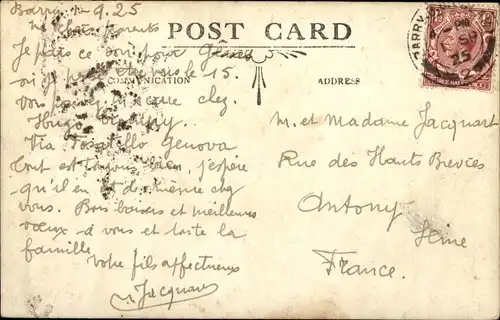 Barry 9.25
POST CARD
COMMUNICATION
ADDRESS
BARRY
25
chers parents
Je pars ce soir pour Genes
où je pense être vers le 15.
Vous pouvez m'écrire chez
Hugo
Via Genova
Tout est toujours bien, j'espère
qu'il en est de même chez
vous. Bons baisers et meilleurs
voeux à vous et toute la
famille
Votre fils affectueux
Jacquart
M. et Madame Jacquart
Rue des Hautes Brevces
Antony
Seine
France.